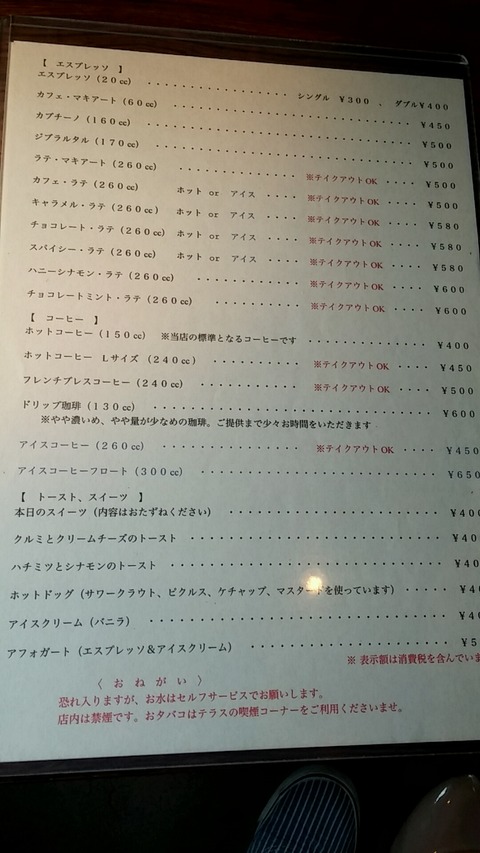 【 エスプレッソ 】
エスプレッソ（20cc） ・・・・・・・・・・・・・・・・ シングル ￥300 、 ダブル￥400
カフェ・マキアート（60cc） ・・・・・・・・・・・・・・・・・・・・・・・・ ￥450
カプチーノ（160cc） ・・・・・・・・・・・・・・・・・・・・・・・・・・・ ￥500
ジブラルタル（170cc） ・・・・・・・・・・・・・・・・・・・・・・・・・・ ￥500
ラテ・マキアート（260cc） ・・・・・・・・・・・・ ※テイクアウトOK ・・・・ ￥500
カフェ・ラテ（260cc） ホット or アイス ・・・・ ※テイクアウトOK ・・・・ ￥500
キャラメル・ラテ（260cc） ホット or アイス ・・・・ ※テイクアウトOK ・・・・ ￥580
チョコレート・ラテ（260cc） ホット or アイス ・・・・ ※テイクアウトOK ・・・・ ￥580
スパイシー・ラテ（260cc） ホット or アイス ・・・・ ※テイクアウトOK ・・・・ ￥580
ハニーシナモン・ラテ（260cc） ・・・・・・・・・・ ※テイクアウトOK ・・・・ ￥600
チョコレートミント・ラテ（260cc） ・・・・・・・・ ※テイクアウトOK ・・・・ ￥600
【 コーヒー 】
ホットコーヒー（150cc） ※当店の標準となるコーヒーです ・・・・・・・・・・・・ ￥400
ホットコーヒー Lサイズ（240cc） ・・・・・・・・・ ※テイクアウトOK ・・・・ ￥450
フレンチプレスコーヒー（240cc） ・・・・・・・・・・ ※テイクアウトOK ・・・・ ￥500
ドリップ珈琲（130cc） ・・・・・・・・・・・・・・・・・・・・・・・・・・ ￥600
※やや濃いめ、やや量が少なめの珈琲。ご提供まで少々お時間をいただきます
アイスコーヒー（260cc） ・・・・・・・・・・・・・・ ※テイクアウトOK ・・・・ ￥450
アイスコーヒーフロート（300cc） ・・・・・・・・・・・・・・・・・・・・・ ￥650
【 トースト、スイーツ 】
本日のスイーツ（内容はおたずねください） ・・・・・・・・・・・・・・・・・・ ￥40
クルミとクリームチーズのトースト ・・・・・・・・・・・・・・・・・・・・・・ ￥40
ハチミツとシナモンのトースト ・・・・・・・・・・・・・・・・・・・・・・・・ ￥40
ホットドッグ（サワークラウト、ピクルス、ケチャップ、マスタードを使っています） ・・・・・ ￥4
アイスクリーム（バニラ） ・・・・・・・・・・・・・・・・・・・・・・・・・・ ￥4
アフォガート（エスプレッソ＆アイスクリーム） ・・・・・・・・・・・・・・・・・ ￥5
※ 表示額は消費税を含んでいま
〈 お ね が い 〉
恐れ入りますが、お水はセルフサービスでお願いします。
店内は禁煙です。おタバコはテラスの喫煙コーナーをご利用くださいませ。